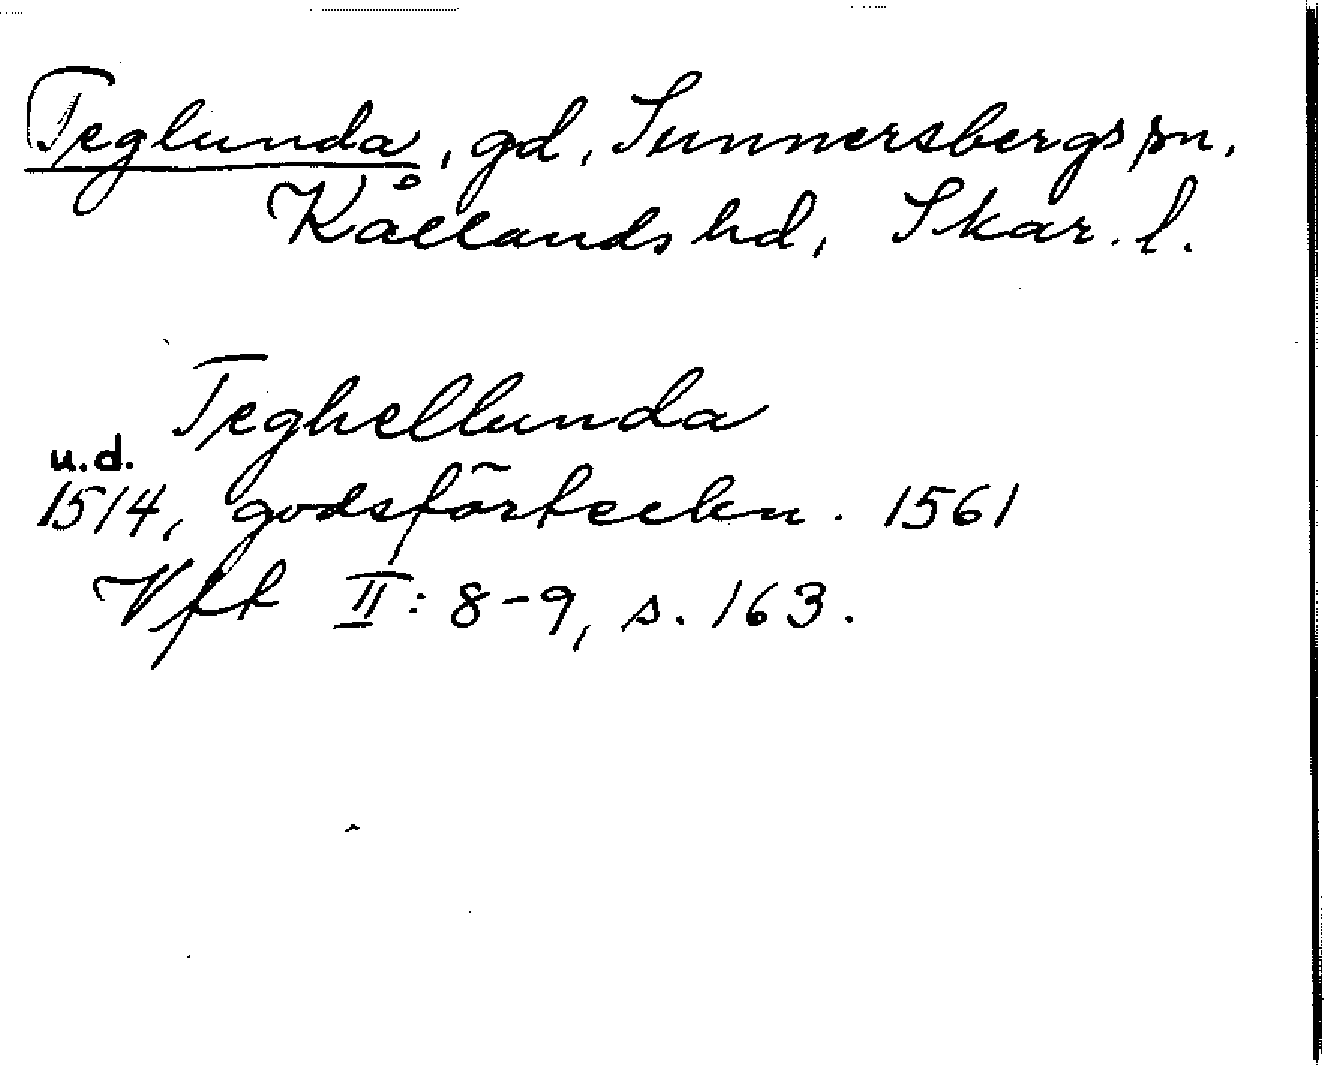 Teglunda, gd, Sunnersbergs sn,
Kållands hd, Skar. l.
Teghellunda
u.d.
1514, godsförteckn. 1561
Vft II: 8-9, s. 163.